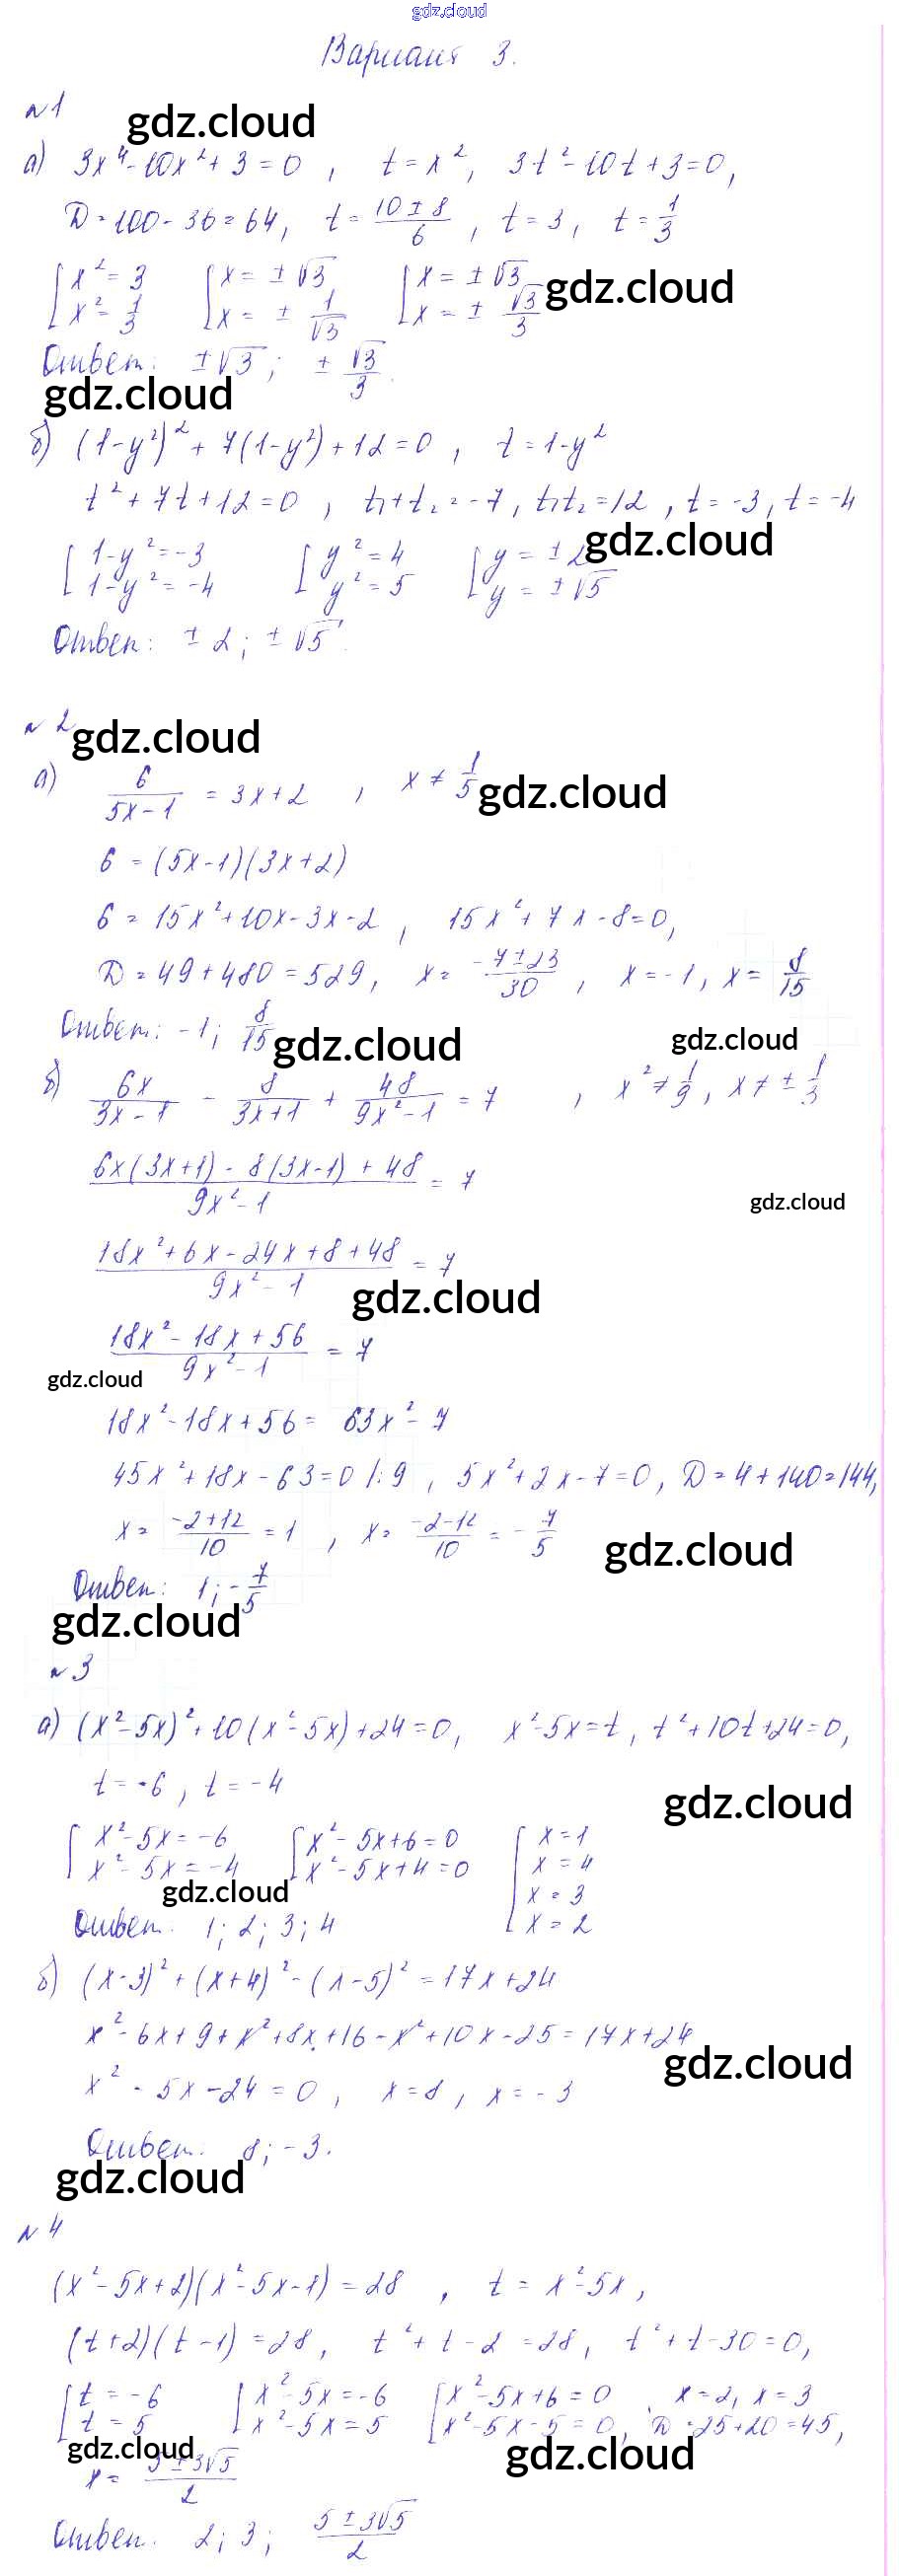 gdz.cloud
Вариант 3.
№1
gdz.cloud
а) 3x⁴-10x²+3=0, t=x², 3t²-10t+3=0,
D=100-36=64, t=(10±8)/6, t=3, t=1/3
[x²=3 [x=±√3 [x=±√3
x²=1/3 x=±1/√3 x=±√3/3
gdz.cloud
Ответ: ±√3; ±√3/3.
gdz.cloud
б) (1-y²)²+7(1-y²)+12=0, t=1-y²
t²+7t+12=0, t₁+t₂=-7, t₁t₂=12, t=-3, t=-4
gdz.cloud
[1-y²=-3 [y²=4 [y=±2
1-y²=-4 y²=5 y=±√5
Ответ: ±2; ±√5.
№2
gdz.cloud
а) 6/(5x-1) = 3x+2, x≠1/5
gdz.cloud
6=(5x-1)(3x+2)
6=15x²+10x-3x-2, 15x²+7x-8=0,
D=49+480=529, x=(-7±23)/30, x=-1, x=8/15
Ответ: -1; 8/15
gdz.cloud gdz.cloud
б) 6x/(3x-1) - 8/(3x+1) + 48/(9x²-1) = 7, x²≠1/9, x≠±1/3
(6x(3x+1)-8(3x-1)+48)/(9x²-1) = 7
gdz.cloud
(18x²+6x-24x+8+48)/(9x²-1) = 7
gdz.cloud
(18x²-18x+56)/(9x²-1) = 7
gdz.cloud
18x²-18x+56=63x²-7
45x²+18x-63=0 |:9, 5x²+2x-7=0, D=4+140=144,
x=(-2+12)/10=1, x=(-2-12)/10=-7/5
gdz.cloud
Ответ: 1; -7/5
gdz.cloud
№3
а) (x²-5x)²+10(x²-5x)+24=0, x²-5x=t, t²+10t+24=0,
t=-6, t=-4
gdz.cloud
[x²-5x=-6 [x²-5x+6=0 [x=1
x²-5x=-4 x²-5x+4=0 x=4
gdz.cloud x=3
Ответ: 1; 2; 3; 4 x=2
б) (x-3)²+(x+4)²-(x-5)²=17x+24
x²-6x+9+x²+8x+16-x²+10x-25=17x+24
gdz.cloud
x²-5x-24=0, x=8, x=-3
Ответ: 8; -3.
gdz.cloud
№4
(x²-5x+2)(x²-5x-1)=28, t=x²-5x,
(t+2)(t-1)=28, t²+t-2=28, t²+t-30=0,
[t=-6 [x²-5x=-6 [x²-5x+6=0, x=2, x=3
t=5 x²-5x=5 x²-5x-5=0, D=25+20=45,
gdz.cloud gdz.cloud
x=(5±3√5)/2
Ответ: 2; 3; (5±3√5)/2